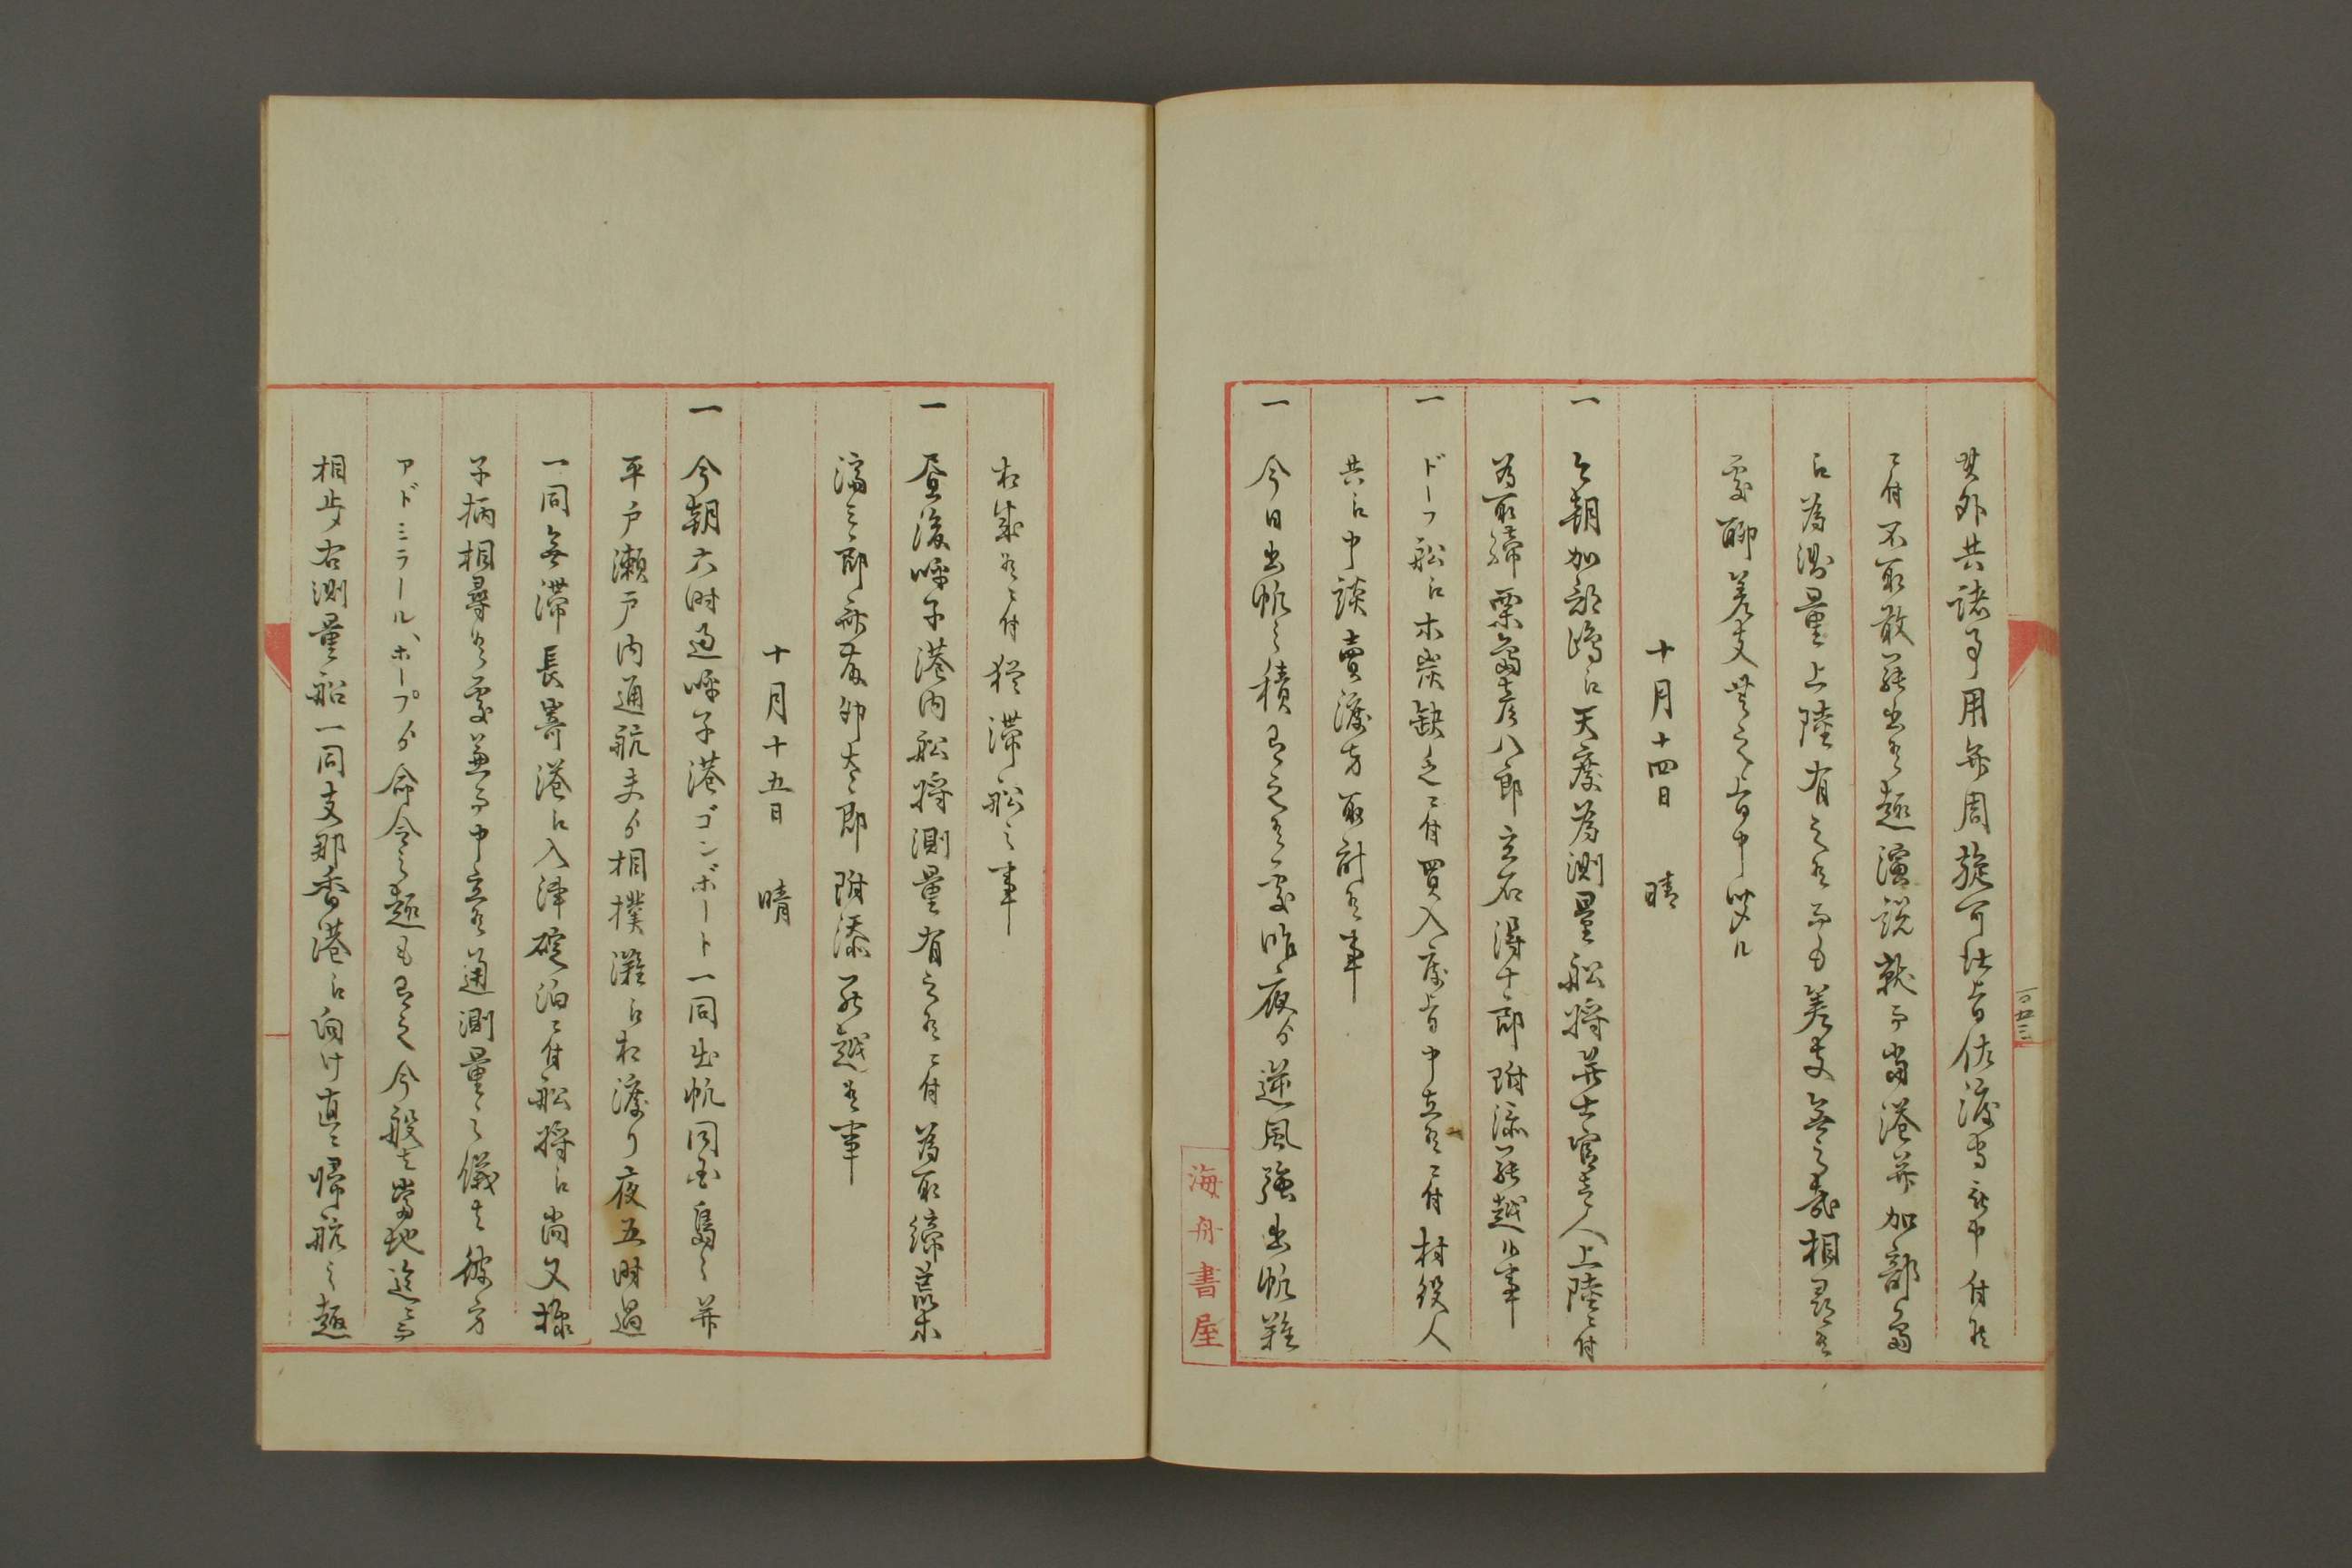 其外共諸事用弁周旋可仕旨佐渡守殿申付候
ニ付不取敢罷出候趣演説致し当港并加部島
江為測量上陸有之候而も差支無之哉相尋候
処聊差支無之旨申聞ル
十月十四日 晴
一 今朝加部島江天度為測量船将并士官壱人上陸ニ付
為取締栗島彦八郎立石得十郎附添罷越候事
一 ドーフ船江木炭缺乏ニ付買入度旨申立候ニ付村役人
共江申談賣渡方取計候事
一 今日出帆之積有之候処昨夜ゟ逆風強出帆難
海舟書屋
相成候ニ付猶滞船之事
一 昼後呼子港内船将測量有之候ニ付為取締荒木
済三郎 卯太郎附添罷越候事
十月十五日 晴
一 今朝六時過呼子港ゴンボート一同出帆同国島々并
平戸瀬戸内通航夫ゟ相撲灘江相渡り夜五時過
一同無滞長崎港江入津碇泊ニ付船将江尚又様
子柄相尋候処兼而申立候通測量之儀者彼方
アドミラール、ホープゟ命令之趣も有之今般者當地迄ニ而
相止メ右測量船一同支那香港江向け直ニ帰航之趣
一百五十三